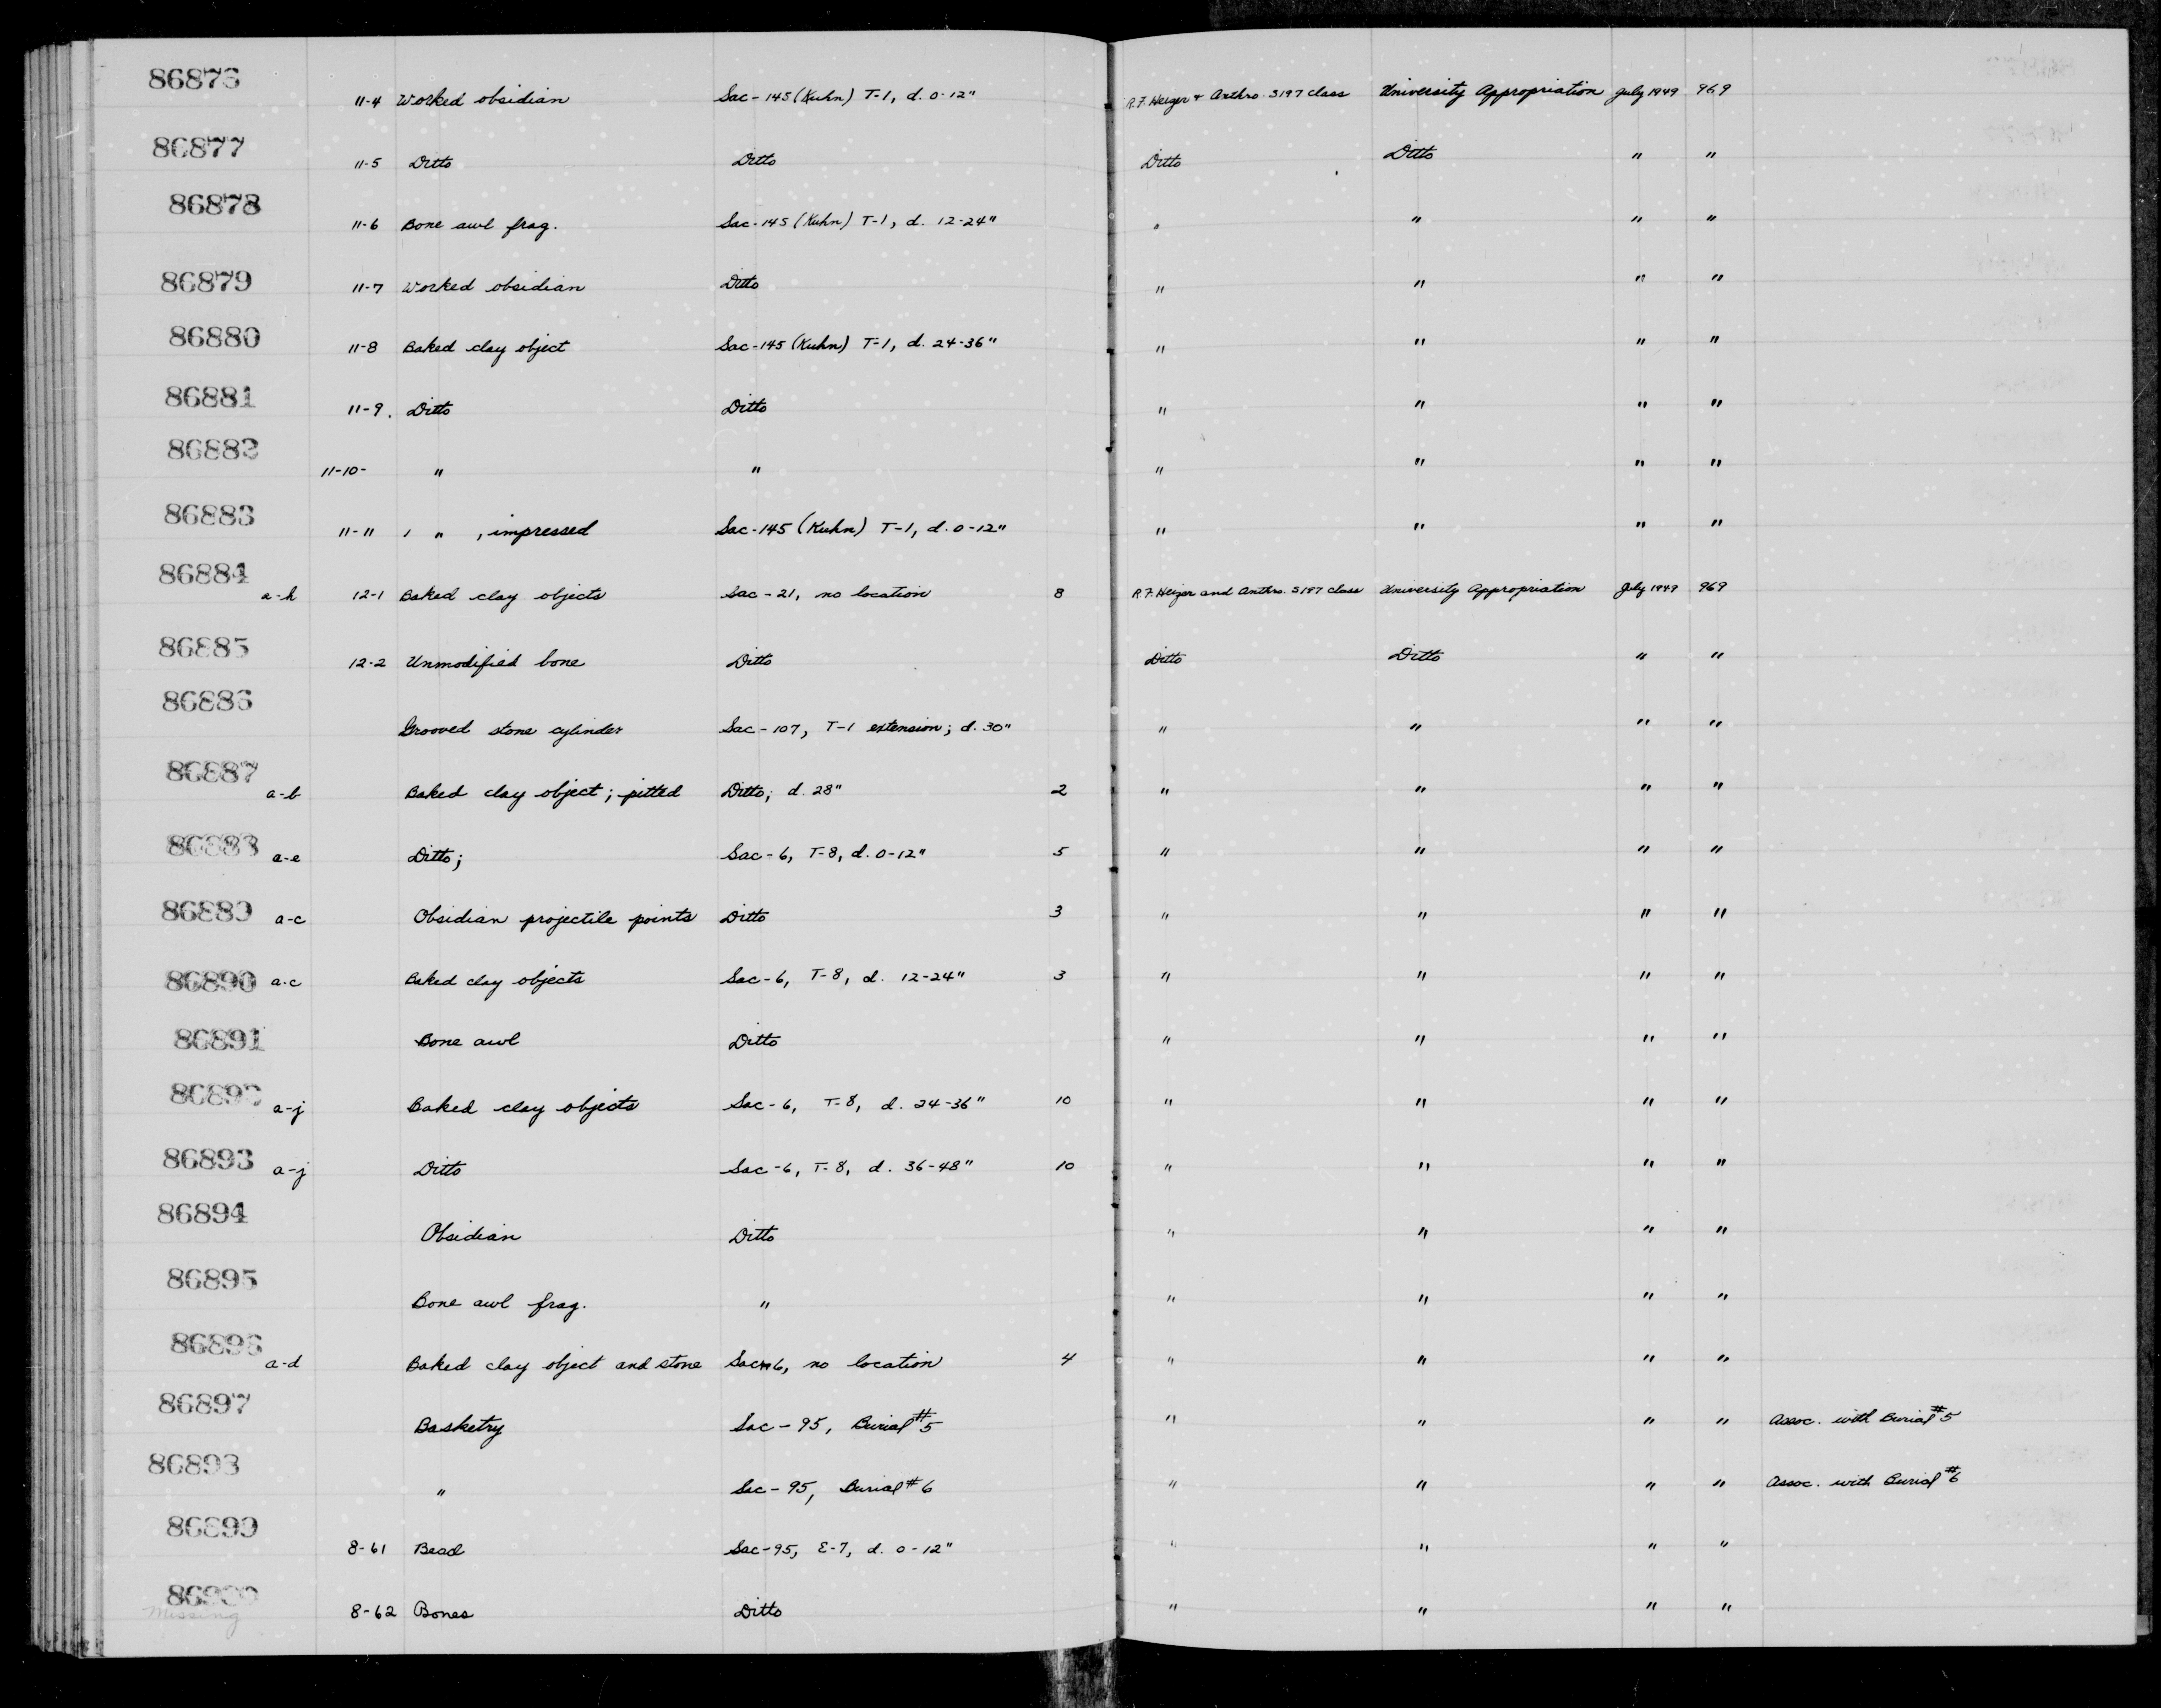 86876 11-4 Worked obsidian Sac-145 (Kuhn) T-1, d. 0-12" R.F. Heizer + Anthro. S197 class University Appropriation July 1949 969
86877 11-5 Ditto Ditto Ditto Ditto " "
86878 11-6 Bone awl frag. Sac-145 (Kuhn) T-1, d. 12-24" " " " "
86879 11-7 Worked obsidian Ditto " " " "
86880 11-8 Baked clay object Sac-145 (Kuhn) T-1, d. 24-36" " " " "
86881 11-9. Ditto Ditto " " " "
86882 11-10- " " " " " "
86883 11-11 1 " , impressed Sac-145 (Kuhn) T-1, d. 0-12" " " " "
86884 a-h 12-1 Baked clay objects Sac-21, no location 8 R.F. Heizer and Anthro. S197 class University Appropriation July 1949 969
86885 12-2 Unmodified bone Ditto Ditto Ditto " "
86886 Grooved stone cylinder Sac-107, T-1 extension; d. 30" " " " "
86887 a-b Baked clay object; pitted Ditto; d. 28" 2 " " " "
86888 a-e Ditto; Sac-6, T-8, d. 0-12" 5 " " " "
86889 a-c Obsidian projectile points Ditto 3 " " " "
86890 a-c Baked clay objects Sac-6, T-8, d. 12-24" 3 " " " "
86891 Bone awl Ditto " " " "
86892 a-j Baked clay objects Sac-6, T-8, d. 24-36" 10 " " " "
86893 a-j Ditto Sac-6, T-8, d. 36-48" 10 " " " "
86894 Obsidian Ditto " " " "
86895 Bone awl frag. " " " " "
86896 a-d Baked clay object and stone Sac-6, no location 4 " " " "
86897 Basketry Sac-95, Burial #5 " " " " Assoc. with Burial #5
86898 " Sac-95, Burial #6 " " " " Assoc. with Burial #6
86899 8-61 Bead Sac-95, E-7, d. 0-12" " " " "
86900 8-62 Bones Ditto " " " "
Missing